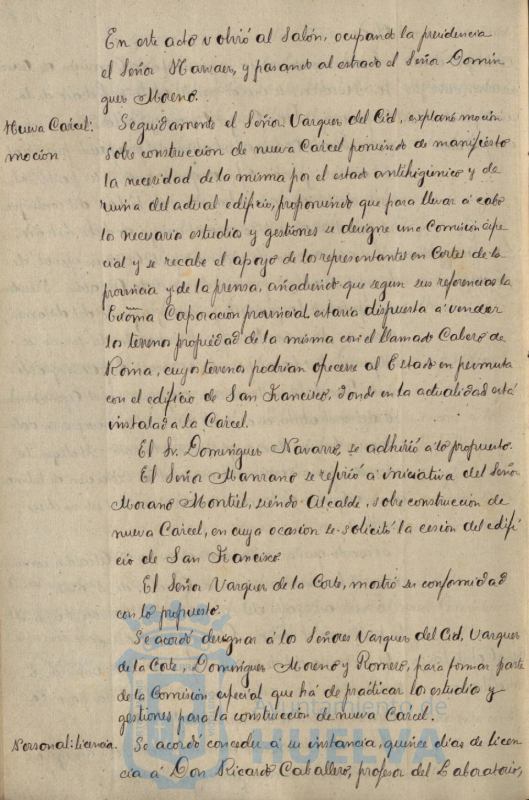 En este acto volvió al Salón, ocupando la presidencia
el Señor Narvaez, y pasando al estrado el Señor Domin
guez Moreno.
Nueva Carcel:
moción
Seguidamente el Señor Vazquez del Cid, explanó moción
sobre construcción de nueva Carcel poniendo de manifiesto
la necesidad de la misma por el estado antihigiénico y de
ruina del actual edificio, proponiendo que para llevar á cabo
los necesarios estudios y gestiones se designe una Comisión espe
cial y se recabe el apoyo de los representantes en Cortes de la
provincia y de la prensa, añadiendo que segun sus referencias la
Excma Corporación provincial estaria dispuesta á vender
los terrenos propiedad de la misma con el llamado Cabezo de
Roma, cuyos terrenos podrian ofrecerse al Estado en permuta
con el edificio de San Francisco, donde en la actualidad está
instalada la Carcel.
El Sr. Dominguez Navarro, se adhirió á lo propuesto.
El Señor Manzano se refirió á iniciativa del Señor
Morano Montiel, siendo Alcalde, sobre construcción de
nueva Carcel, en cuya ocasion se solicitó la cesión del edifi
cio de San Francisco
El Señor Vazquez de la Corte, mostró su conformidad
con lo propuesto.
Se acordó designar á los Señores Vazquez del Cid, Vazquez
de la Corte, Dominguez Moreno y Romero, para formar parte
de la Comisión especial que há de practicar los estudios y
gestiones para la construcción de nueva Carcel.
Personal: licencia.
Se acordó conceder á su instancia, quince dias de licen
cia á Don Ricardo Caballero, profesor del Laboratorio,
Ayuntamiento de
HUELVA